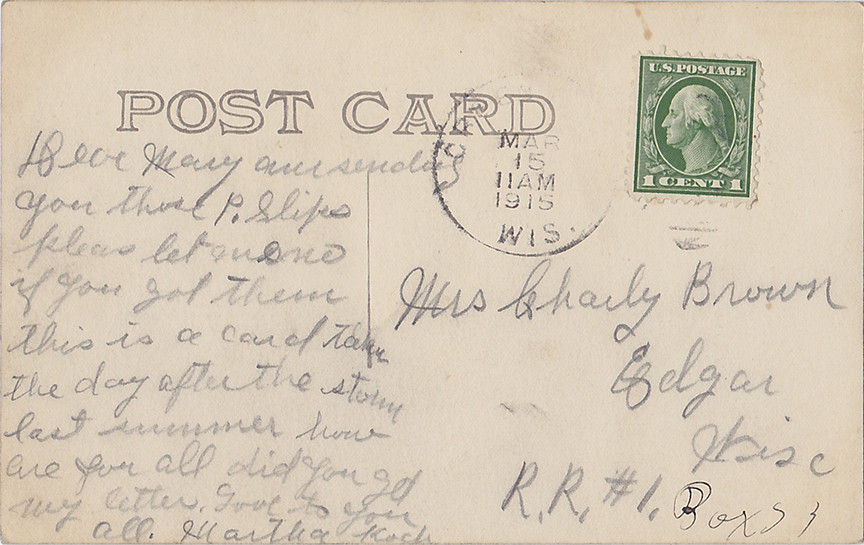 POST CARD
U.S. POSTAGE
1 CENT 1
MAR
15
11AM
1915
WIS.
Mary am sending
you those P. Slips
pleas let me no
if you got them
this is a card taken
the day after the storm
last summer how
are you all did you get
my letter. Love to you
all. Martha Koch
Mrs Charly Brown
Edgar
Wisc
R.R. #1. Box